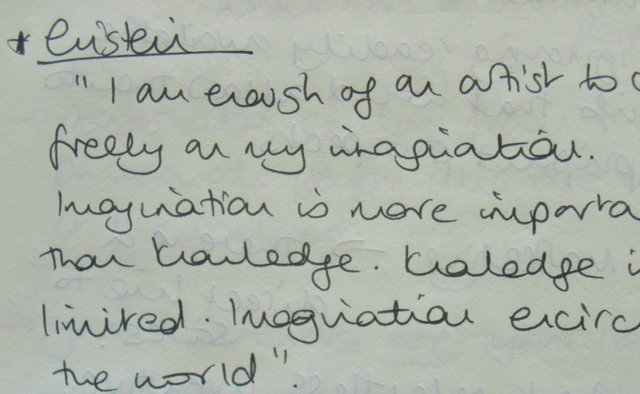 * Einstein
"I am enough of an artist to
freely on my imagination.
Imagination is more importa
than knowledge. Knowledge i
limited. Imagination encirc
the world".